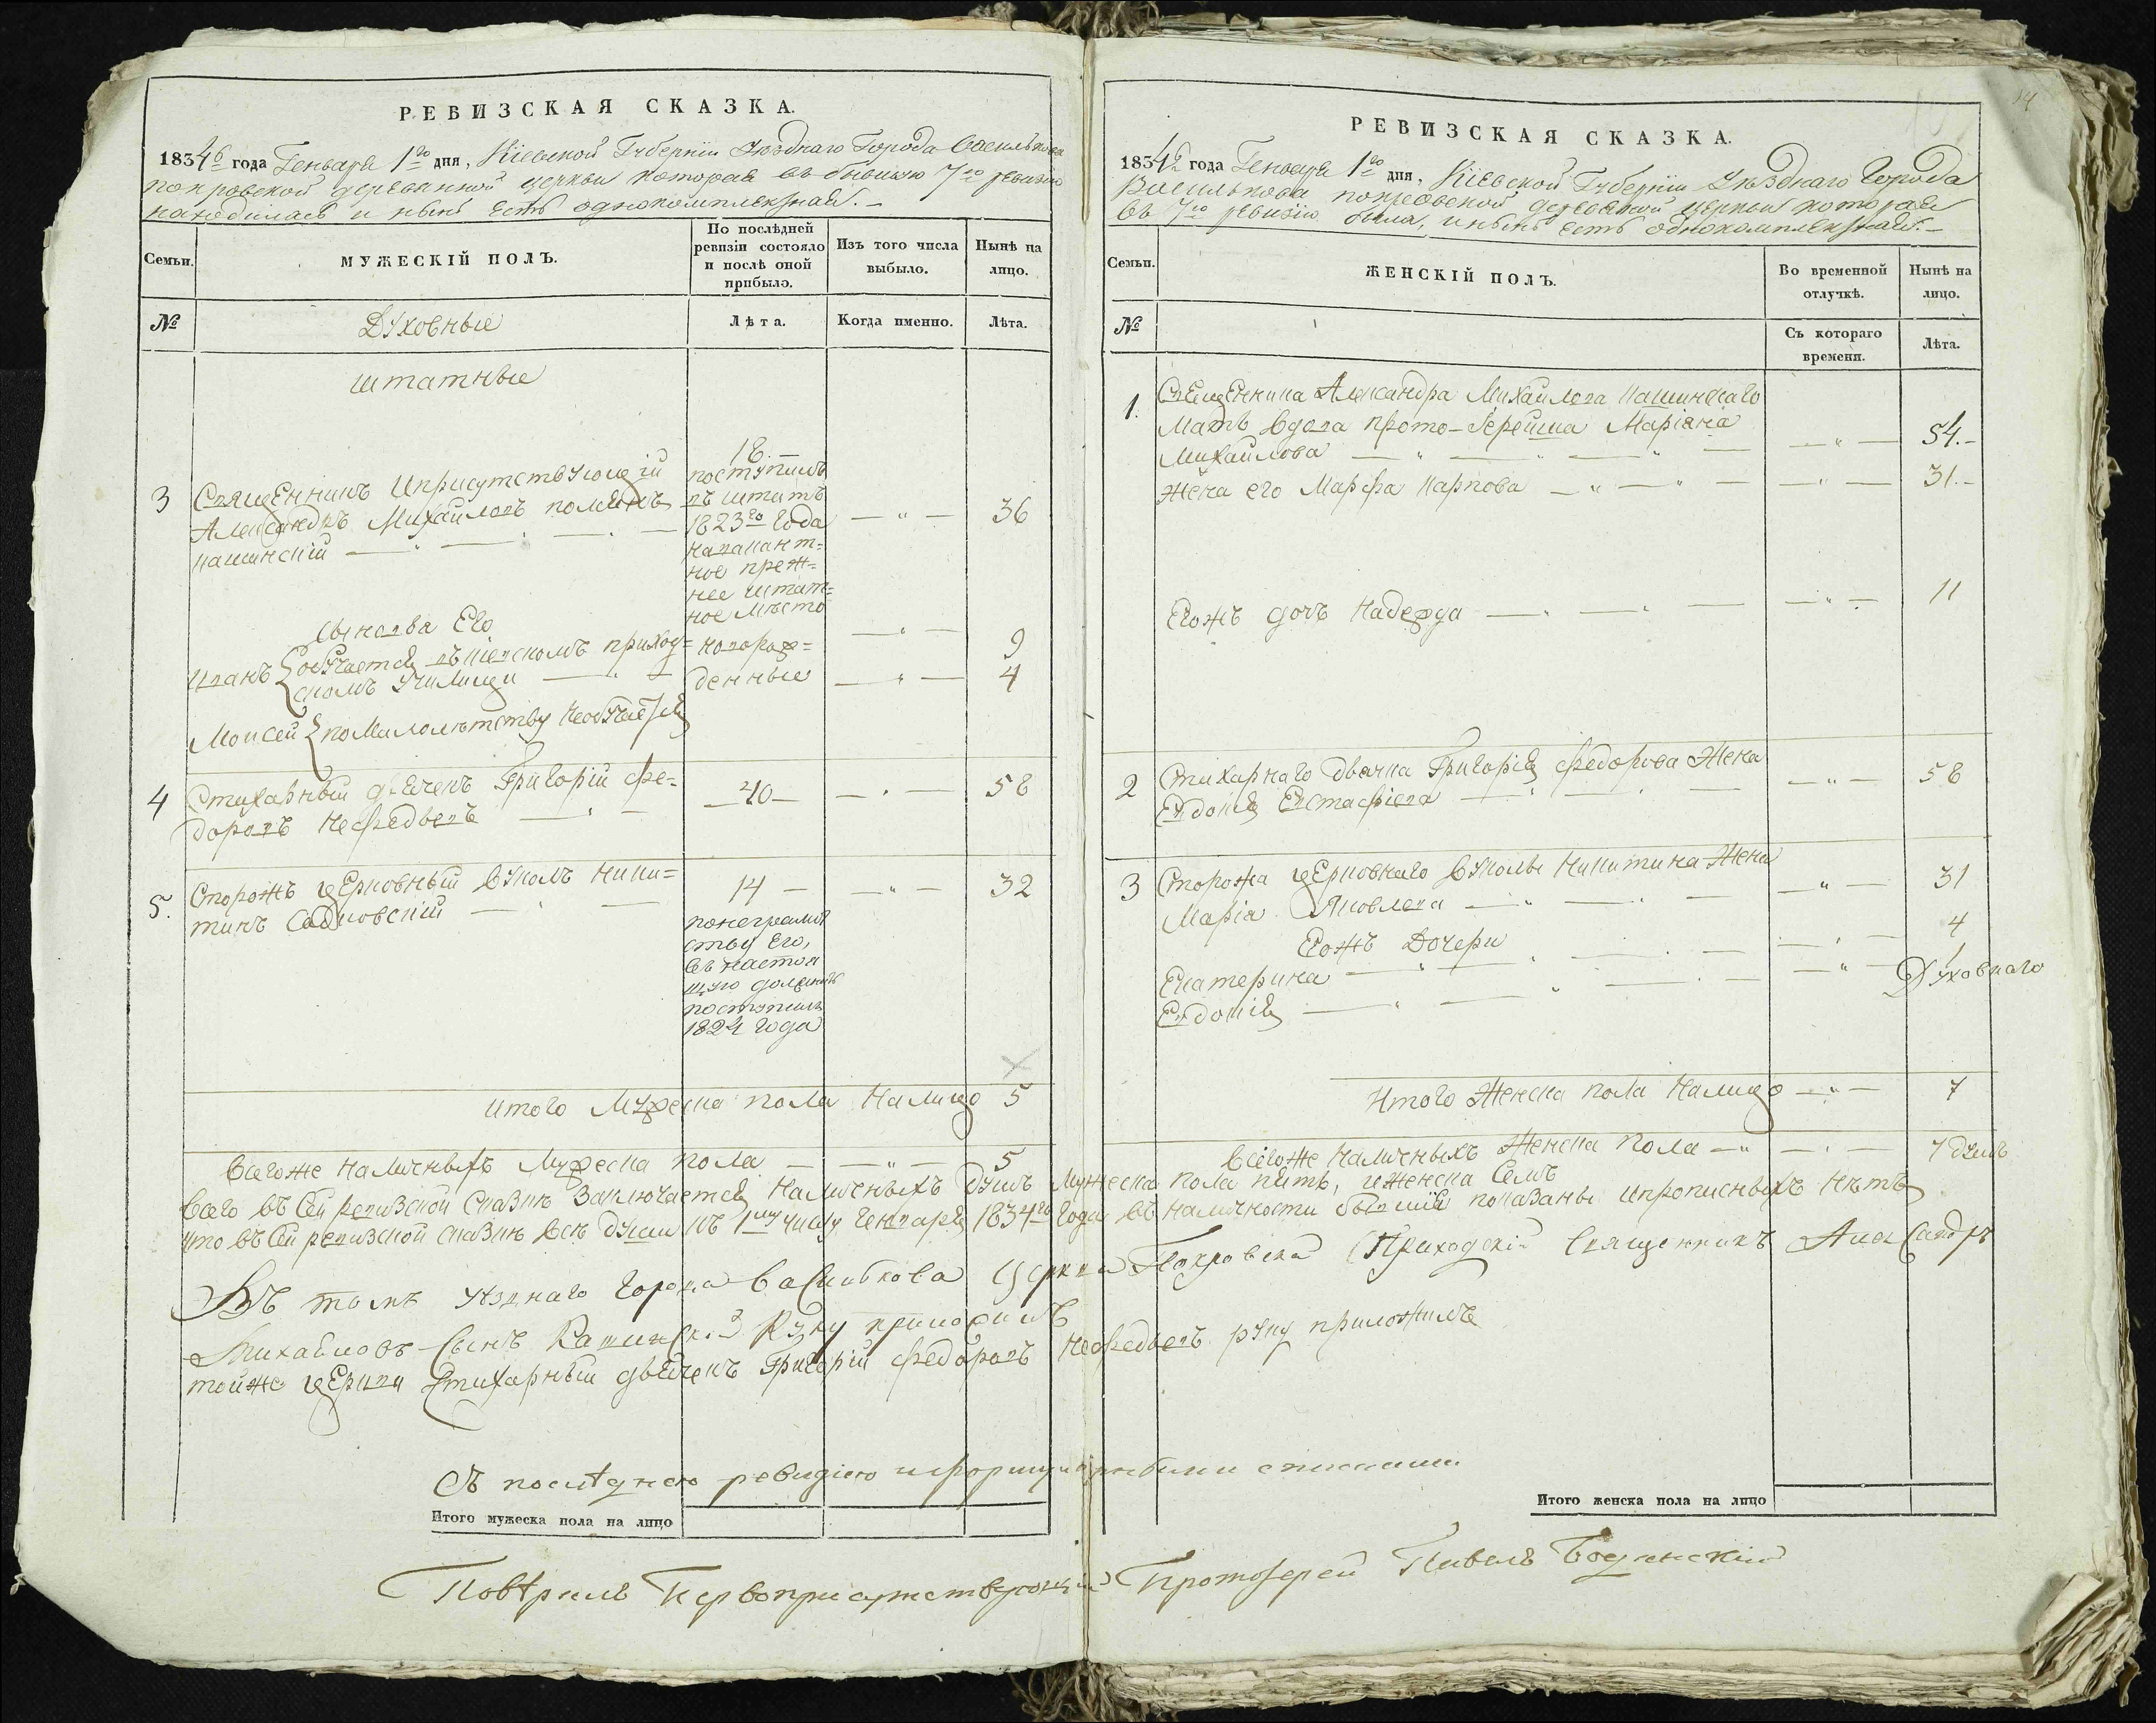 РЕВИЗСКАЯ СКАЗКА.
1834го года Генваря 1го дня, Кіевской Губерніи Уѣзднаго Города Василькова
покровской деревянной церкви которая въ бывшую 7ю ревизію
находилась и нынѣ есть однокомплектная. —
Семьи.
МУЖЕСКІЙ ПОЛЪ.
По послѣдней
ревизіи состояло
и послѣ оной
прибыло.
Изъ того числа
выбыло.
Нынѣ на
лицо.
№
Духовные
Лѣта.
Когда именно.
Лѣта.
штатные
3
Священникъ Иприсутствующій
Александръ Михайловъ
кашинскій
18. —
поступилъ
въ штатъ
1823го Года
навакант=
ное преж=
нее штат=
ное мѣсто
36
сыновья Его
Иванъ обучается въкіевскомъ приход=
скомъ училищи
новорож=
денные
9
4
Моисей помалолѣтству необучается
4
Стихарный дьячекъ Григорій Фе=
доровъ Нефедьевъ
40
58
5.
Сторожъ церковный Вуколъ Ники=
тинъ Садковскій
14 —
32
понеграмот
ству Его,
въ настоя
щую должность
поступилъ
1824 года
Итого Мужеска пола Налицо 5
Всегоже наличныхъ Мужеска пола 5
РЕВИЗСКАЯ СКАЗКА.
1834го года Генваря 1го дня, Кіевской Губерніи Уѣзднаго Города
Василькова покровской деревянной церкви которая
въ 7ю ревизію была, и нынѣ есть однокомплектная. —
Семьи.
ЖЕНСКІЙ ПОЛЪ.
Во временной
отлучкѣ.
Нынѣ на
лицо.
№
Съ котораго
времени.
Лѣта.
1.
Священника Александра Михайлова кашинскаго
Мать вдова прото-Іерейша Маріяна
Михайлова
54. —
Жена его Марфа Карпова
31. —
Егожъ дочь Надежда
11
2
Стихарнаго дьячка Григорія Федорова Жена
Евдокія Евстафіева
58
3
Сторожа церковнаго Вуколы Никитина Жена
Марія Яковлева
31
Егожъ Дочери
Екатерина
4
Евдокія
1
Духовнаго
Итого Женска пола Налицо 7
Всегоже Наличныхъ Женска пола 7 душъ
Всего въ Сей ревизской сказкѣ Заключается Наличныхъ душъ Мужеска пола пять, иженска Семь
что въ Сей ревизской сказкѣ всѣ души къ 1му числу Генваря 1834го года въ наличности бывшіе показаны ипрописныхъ нѣтъ
Въ томъ уѣзднаго города Василькова Церкви Покровской Приходскій Священникъ Александръ
Михайловъ Сынъ Кашинскій Руку приложилъ
тойже Церкви Стихарный дьячекъ Григорій Федоровъ Нефедьевъ руку приложилъ
Съ послѣднею ревизіею
Итого мужеска пола на лицо
Итого женска пола на лицо
Повѣрилъ Первоприсутствующій Протоіерей Павелъ